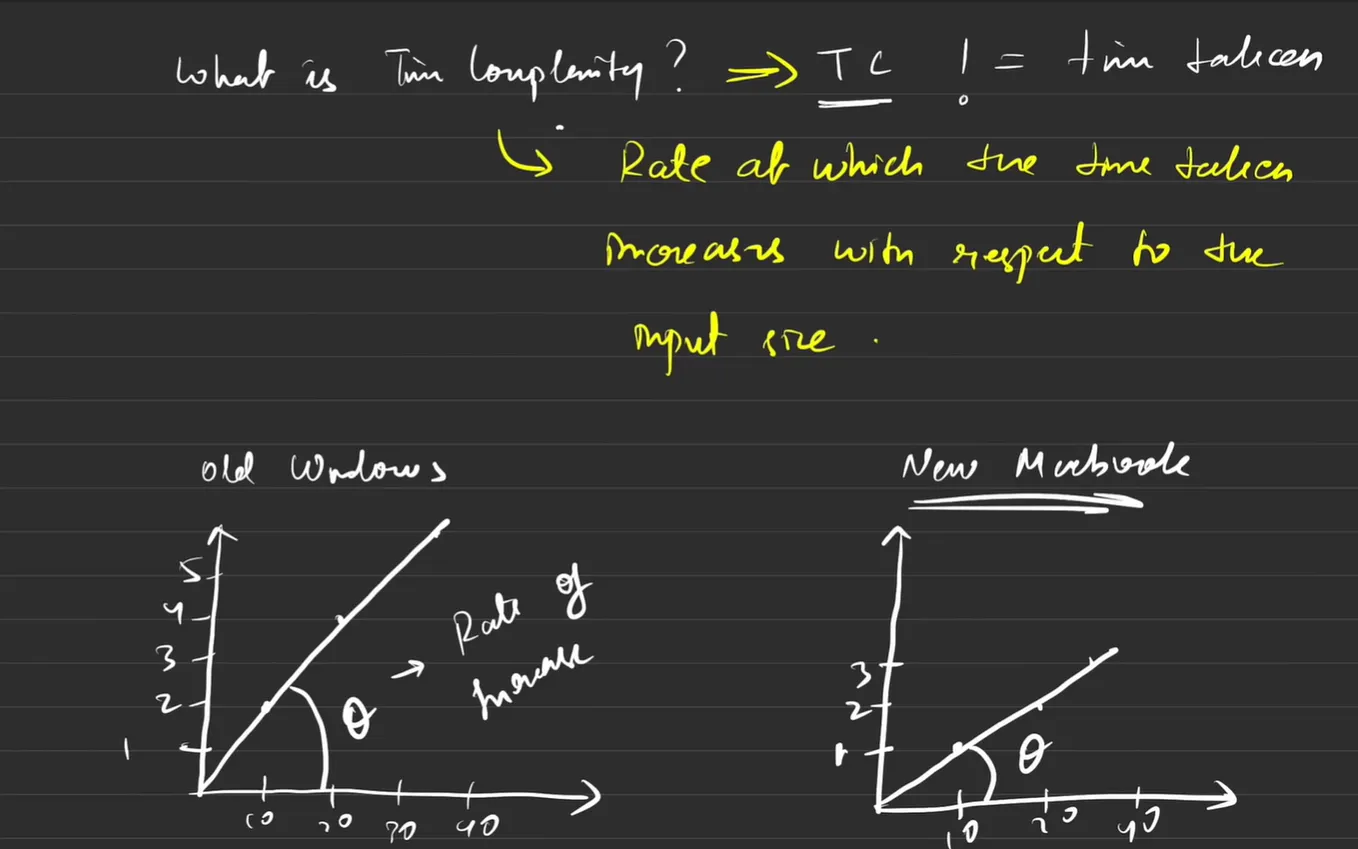 What is Time Complexity? ⇒ TC != time taken
↳ Rate at which the time taken
increases with respect to the
input size.
Old Windows
New Macbook
5
4
3
2
1
θ → Rate of
Increase
10 20 30 40
3
2
1
θ
10 20 40